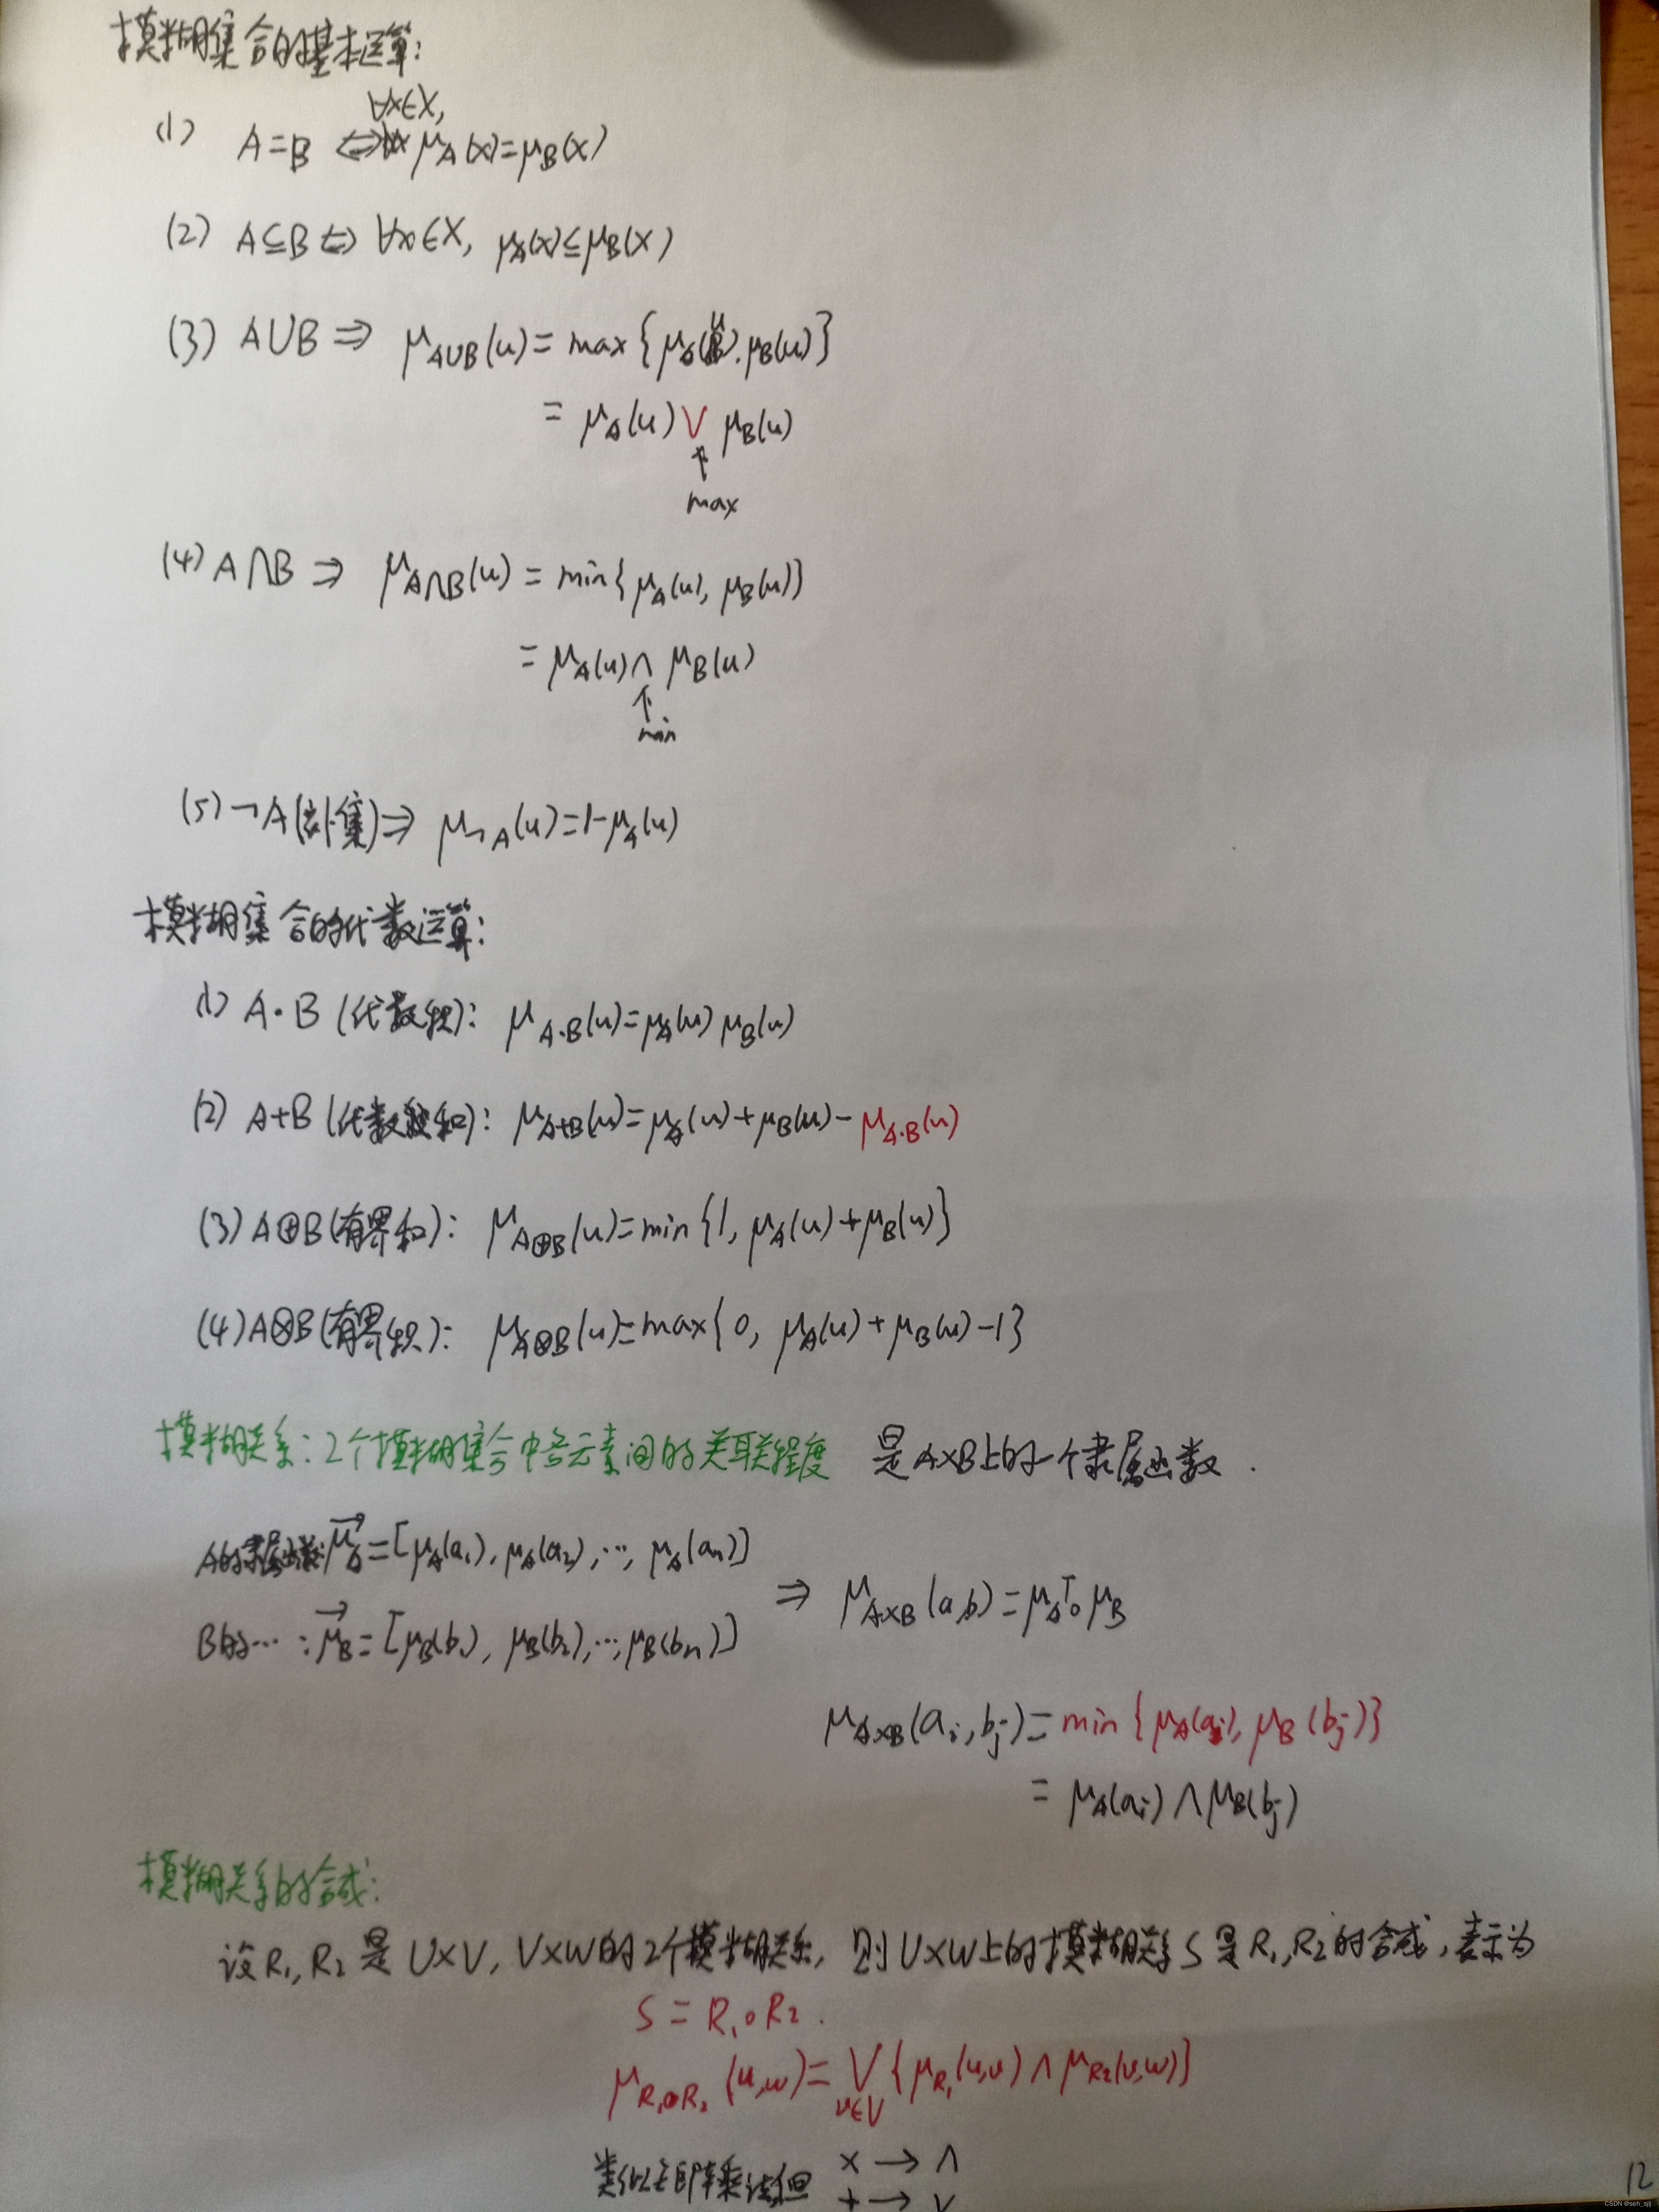 模糊集合的基本运算:
∀x∈X,
(1) A=B ⇔ μ_A(x)=μ_B(x)
(2) A⊆B ⇔ ∀x∈X, μ_A(x)≤μ_B(x)
(3) A∪B ⇒ μ_{A∪B}(u) = max{μ_A(u), μ_B(u)}
= μ_A(u) ∨ μ_B(u)
↑
max
(4) A∩B ⇒ μ_{A∩B}(u) = min{μ_A(u), μ_B(u)}
= μ_A(u) ∧ μ_B(u)
↑
min
(5) ¬A(补集) ⇒ μ_{¬A}(u)=1-μ_A(u)
模糊集合的代数运算:
(1) A·B (代数积): μ_{A·B}(u)=μ_A(u) μ_B(u)
(2) A+B (代数和): μ_{A+B}(u)=μ_A(u)+μ_B(u)-μ_{A·B}(u)
(3) A⊕B(有界和): μ_{A⊕B}(u)=min{1, μ_A(u)+μ_B(u)}
(4) A⊗B(有界积): μ_{A⊗B}(u)=max{0, μ_A(u)+μ_B(u)-1}
模糊关系: 2个模糊集合中各元素间的关联程度 是A×B上的一个隶属函数.
A的隶属函数: μ_A→=[μ_A(a₁), μ_A(a₂), ..., μ_A(aₙ)]
⇒ μ_{A×B}(a,b)=μ_A^T∘μ_B
B的...: μ_B→=[μ_B(b₁), μ_B(b₂), ..., μ_B(bₙ)]
μ_{A×B}(aᵢ,bⱼ)=min{μ_A(aᵢ), μ_B(bⱼ)}
= μ_A(aᵢ)∧μ_B(bⱼ)
模糊关系的合成:
设R₁,R₂是U×V, V×W的2个模糊关系, 则U×W上的模糊关系S是R₁,R₂的合成, 表示为
S=R₁∘R₂.
μ_{R₁∘R₂}(u,w)=∨_{v∈V}{μ_{R₁}(u,v)∧μ_{R2}(v,w)}
类似于矩阵乘法但 × → ∧
+ → ∨
12
CSDN @seh_sjlj